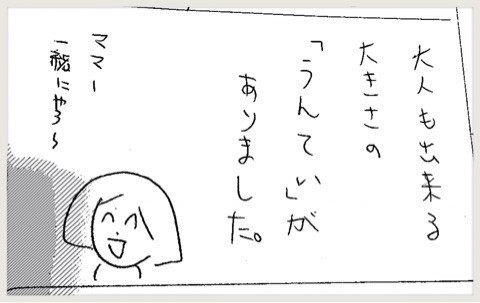 大人も出来る
大きさの
「うんてい」が
ありました。
ママー
一緒にやろ〜